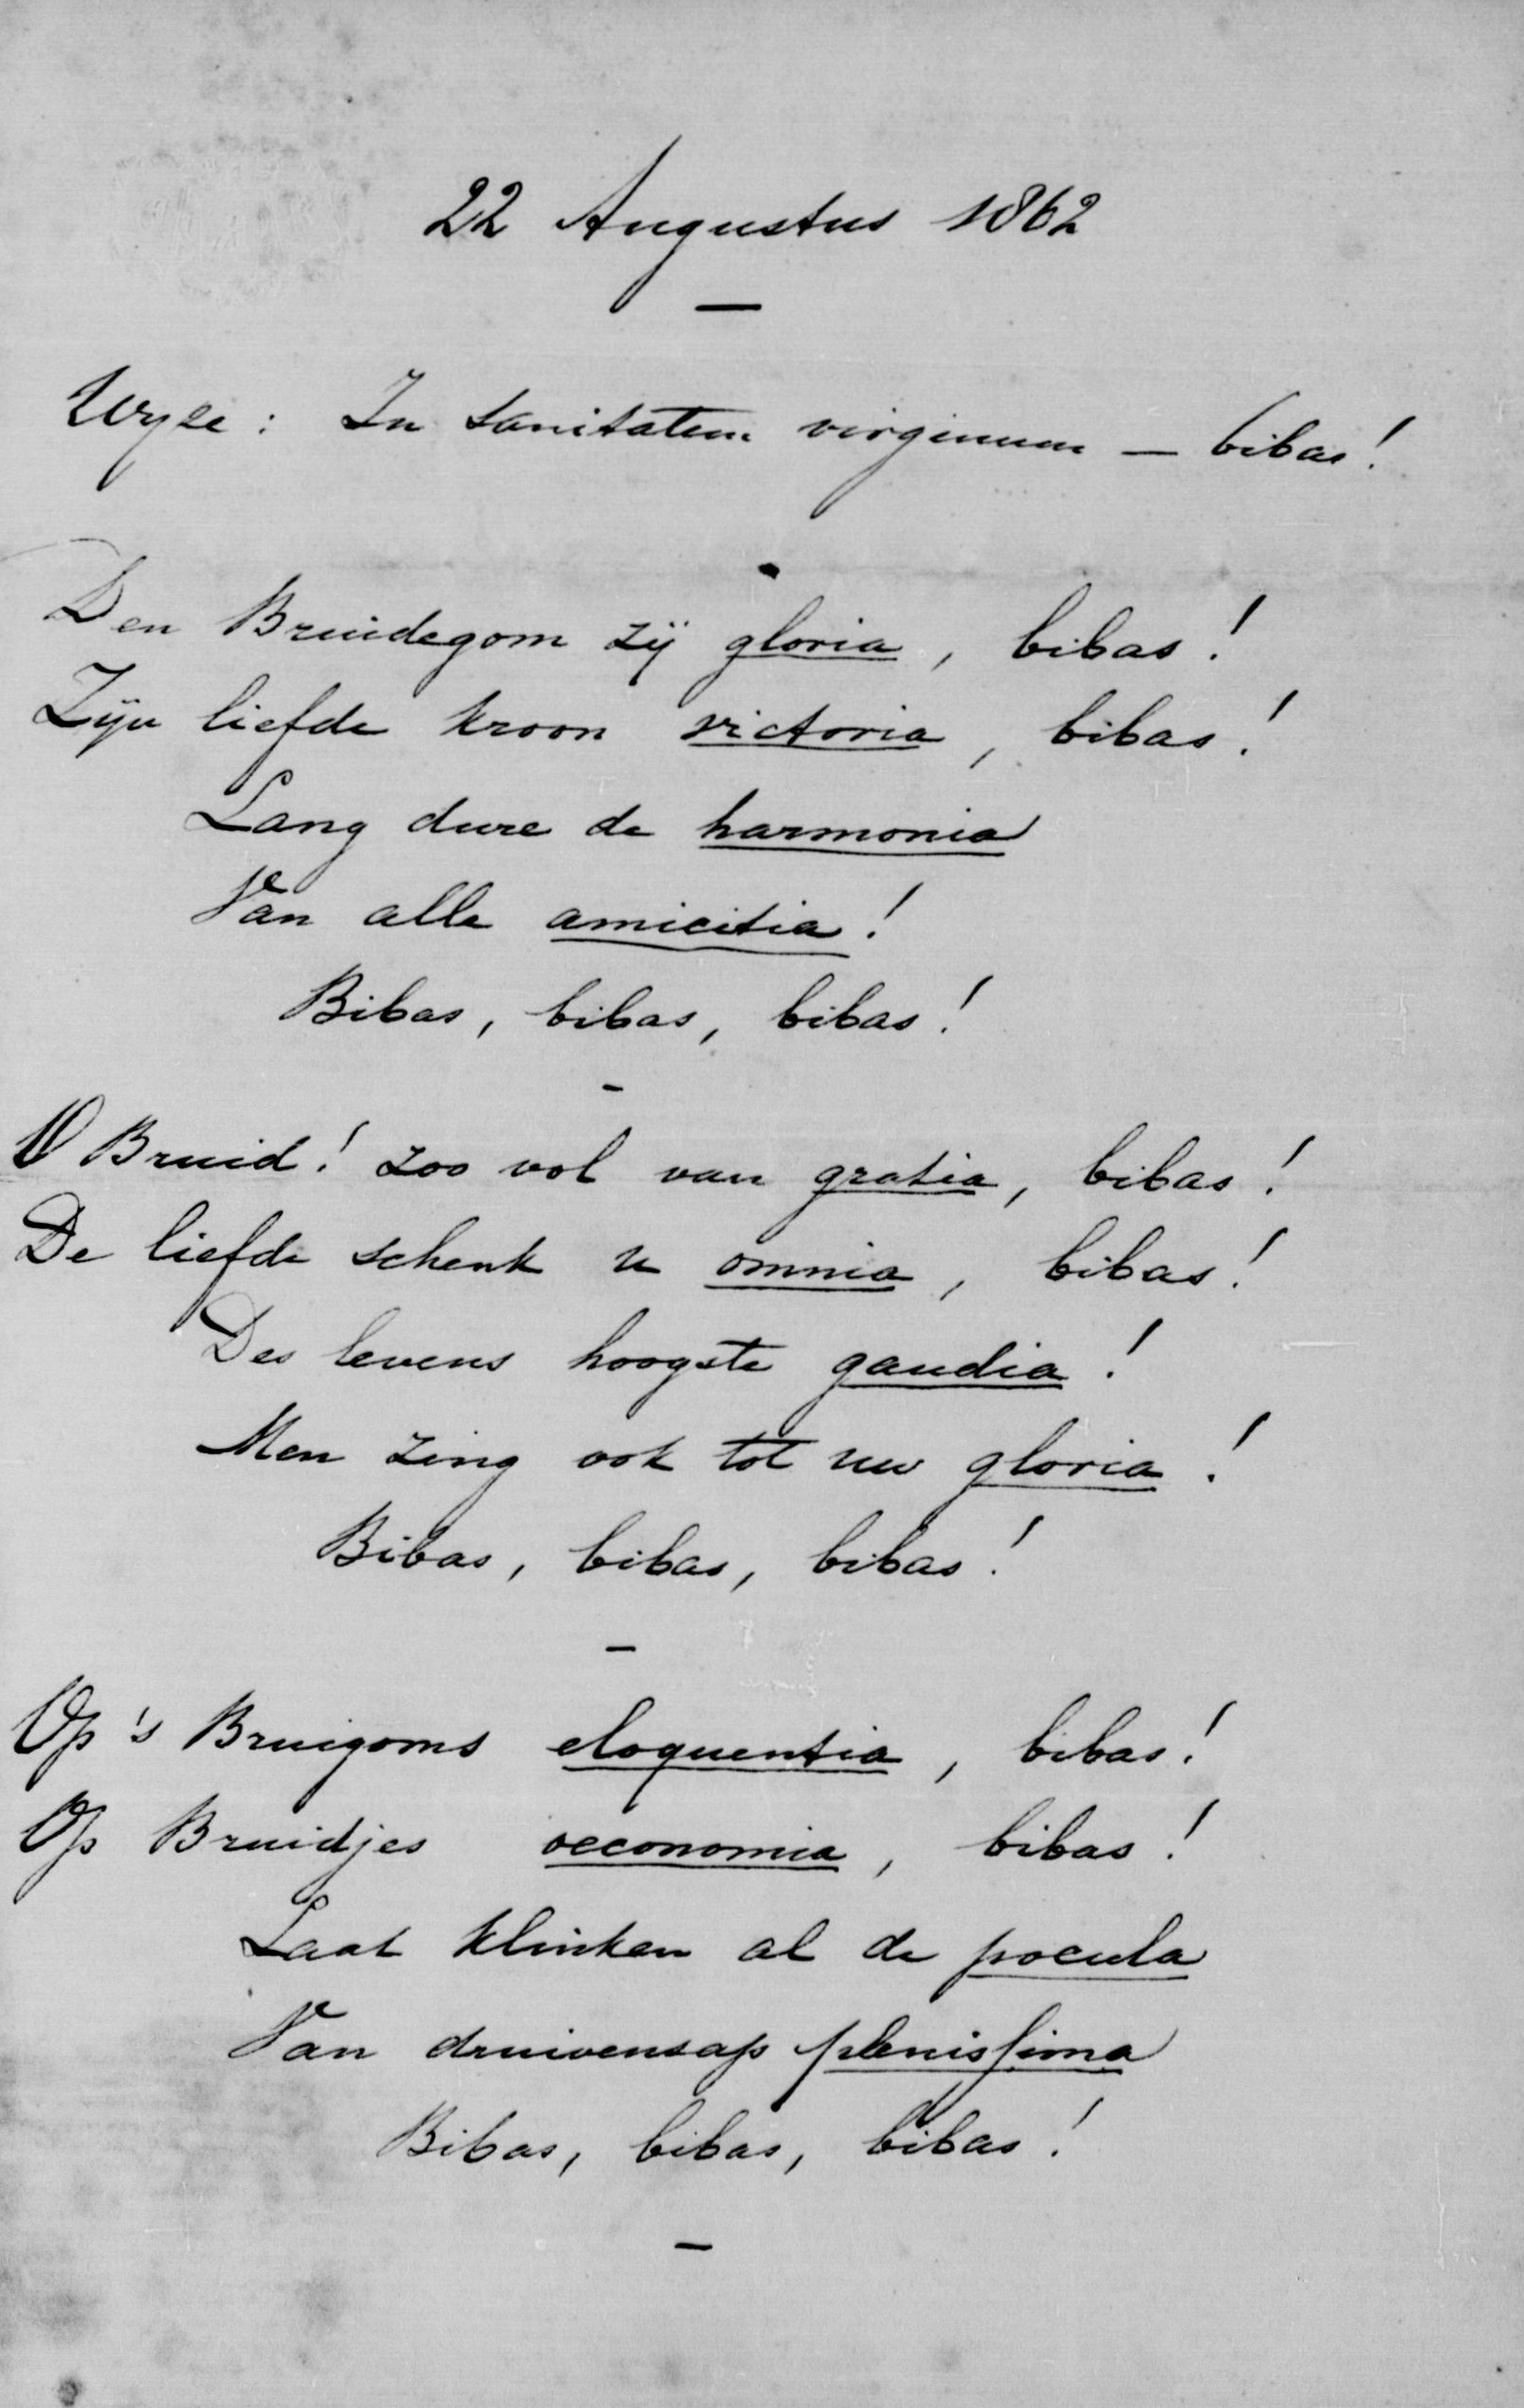 22 Augustus 1862
Wyze: In sanitatem virginum — bibas!
Den Bruidegom zij gloria, bibas!
Zijn liefde kroon victoria, bibas!
Lang dure de harmonia
Van alle amicitia!
Bibas, bibas, bibas!
-
O Bruid! zoo vol van gratia, bibas!
De liefde schenk u omnia, bibas!
Des levens hoogste gaudia!
Men zing ook tot uw gloria!
Bibas, bibas, bibas!
-
Op 's Bruigoms eloquentia, bibas!
Op Bruidjes oeconomia, bibas!
Laat klinken al de pocula
Van druivensap plenissima
Bibas, bibas, bibas!
-